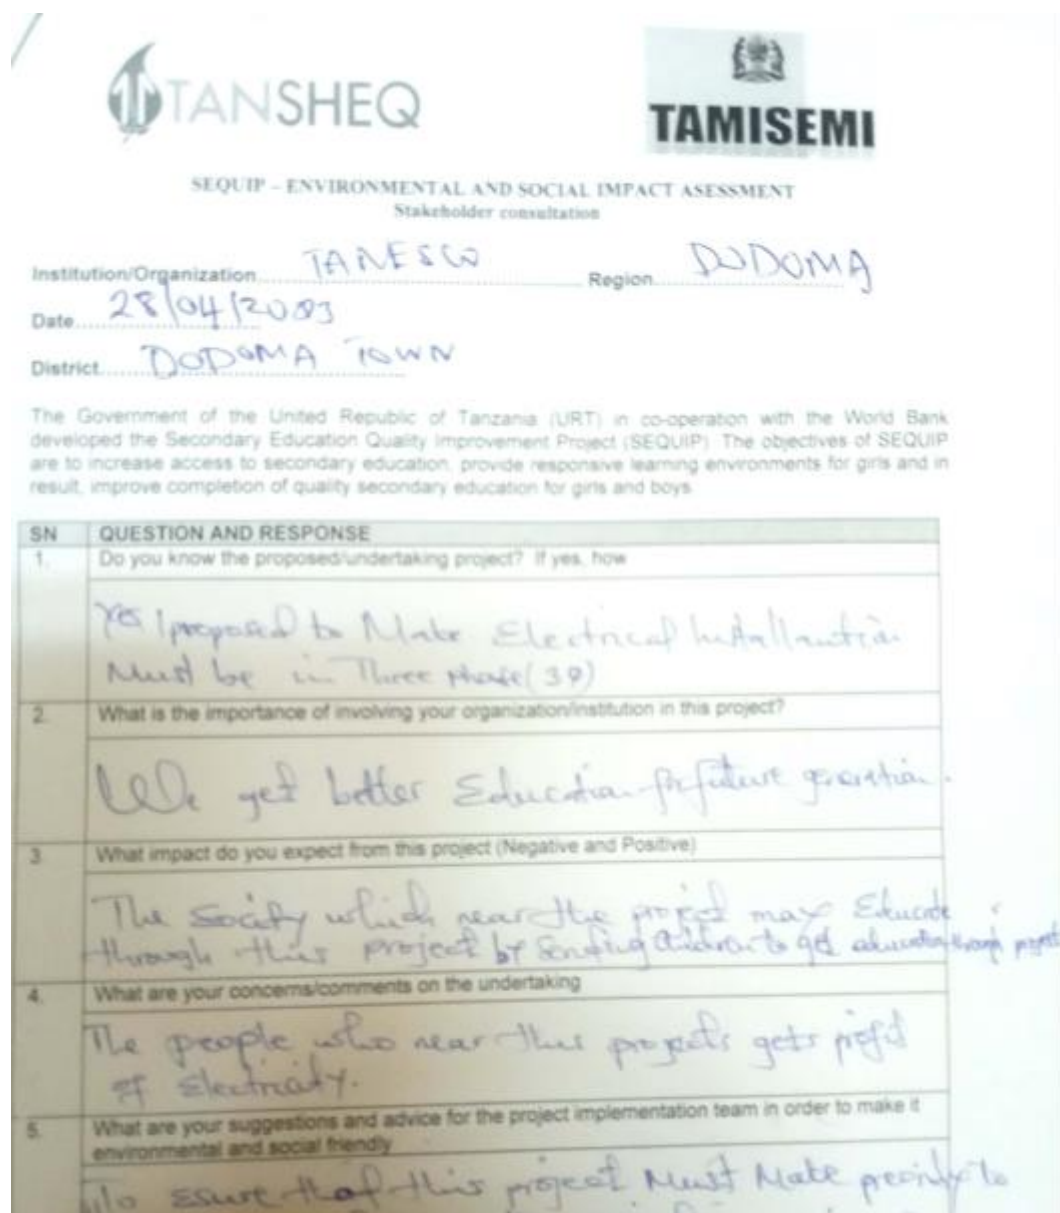 TANSHEQ
TAMISEMI
SEQUIP – ENVIRONMENTAL AND SOCIAL IMPACT ASESSMENT
Stakeholder consultation
Institution/Organization TANESCO Region DODOMA
Date 28/04/2023
District DODOMA TOWN
The Government of the United Republic of Tanzania (URT) in co-operation with the World Bank
developed the Secondary Education Quality Improvement Project (SEQUIP). The objectives of SEQUIP
are to increase access to secondary education, provide responsive learning environments for girls and in
result, improve completion of quality secondary education for girls and boys
SN QUESTION AND RESPONSE
1. Do you know the proposed/undertaking project? If yes, how
Yes I proposed to Make Electrical
Must be in Three Phase
2. What is the importance of involving your organization/institution in this project?
We get better Education for future generation.
3 What impact do you expect from this project (Negative and Positive)
The Socity which near the project may Educate
through this project by Sending children to get education through project
4. What are your concerns/comments on the undertaking
The people who near this projects gets profit
of Electricity.
5. What are your suggestions and advice for the project implementation team in order to make it
environmental and social friendly
To Esure that this project Must Make